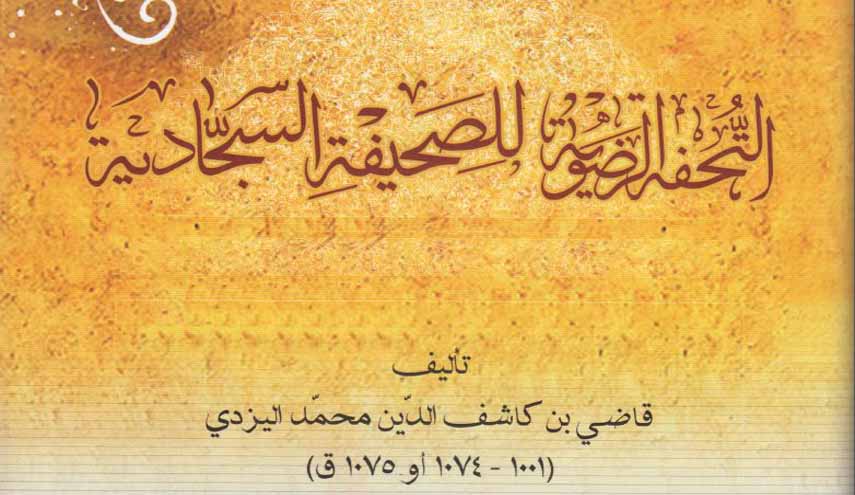 التُّحفة الرّضويّة للصَحيفةِ السّجّادية
تأليف
قاضي بن كاشف الدّين محمّد اليزدي
(١٠٠١ - ١٠٧٤ أو ١٠٧٥ ق)